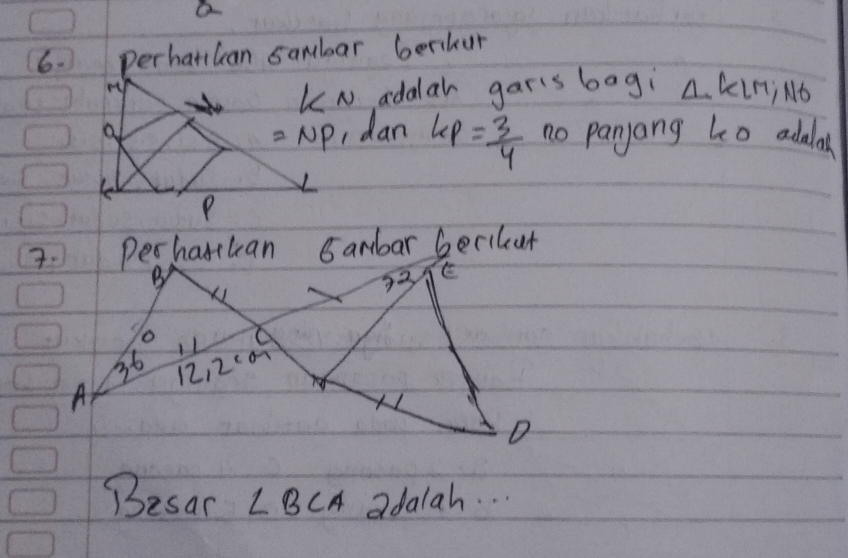 6. Perhatikan Gambar berikut
M
KN adalah garis bagi Δ KLM, NO
O
= NP, dan kp = 3/4 no panjang ko adalah
K L
P
7. Perhatikan Gambar berikut
B
72 E
O
C
36
12,2 cm
A
D
Besar ∠ BCA adalah...